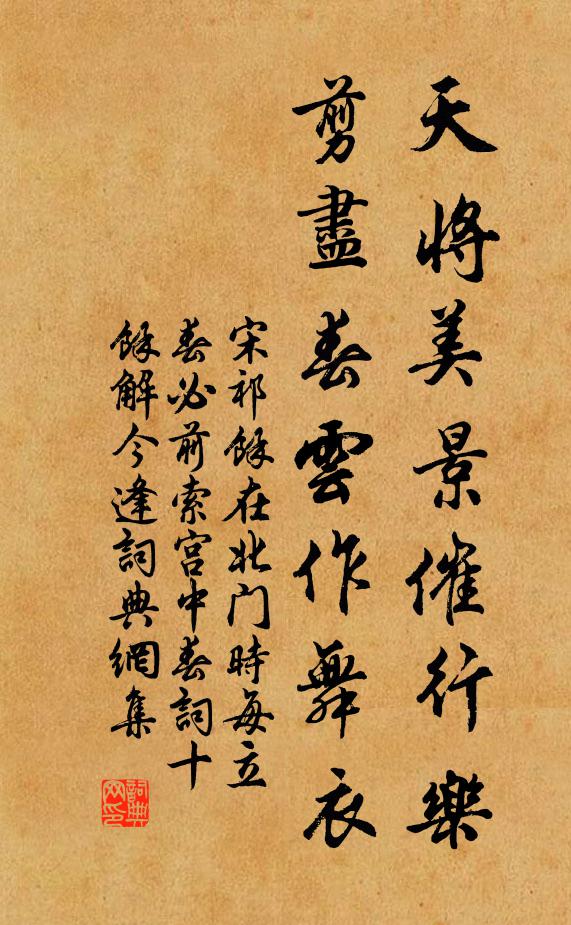 天將美景催行樂
剪盡春雲作舞衣
宋祁餘在北门時每立
春必前索宫中春詞十
餘解今逢詞典網集
詞典
网印